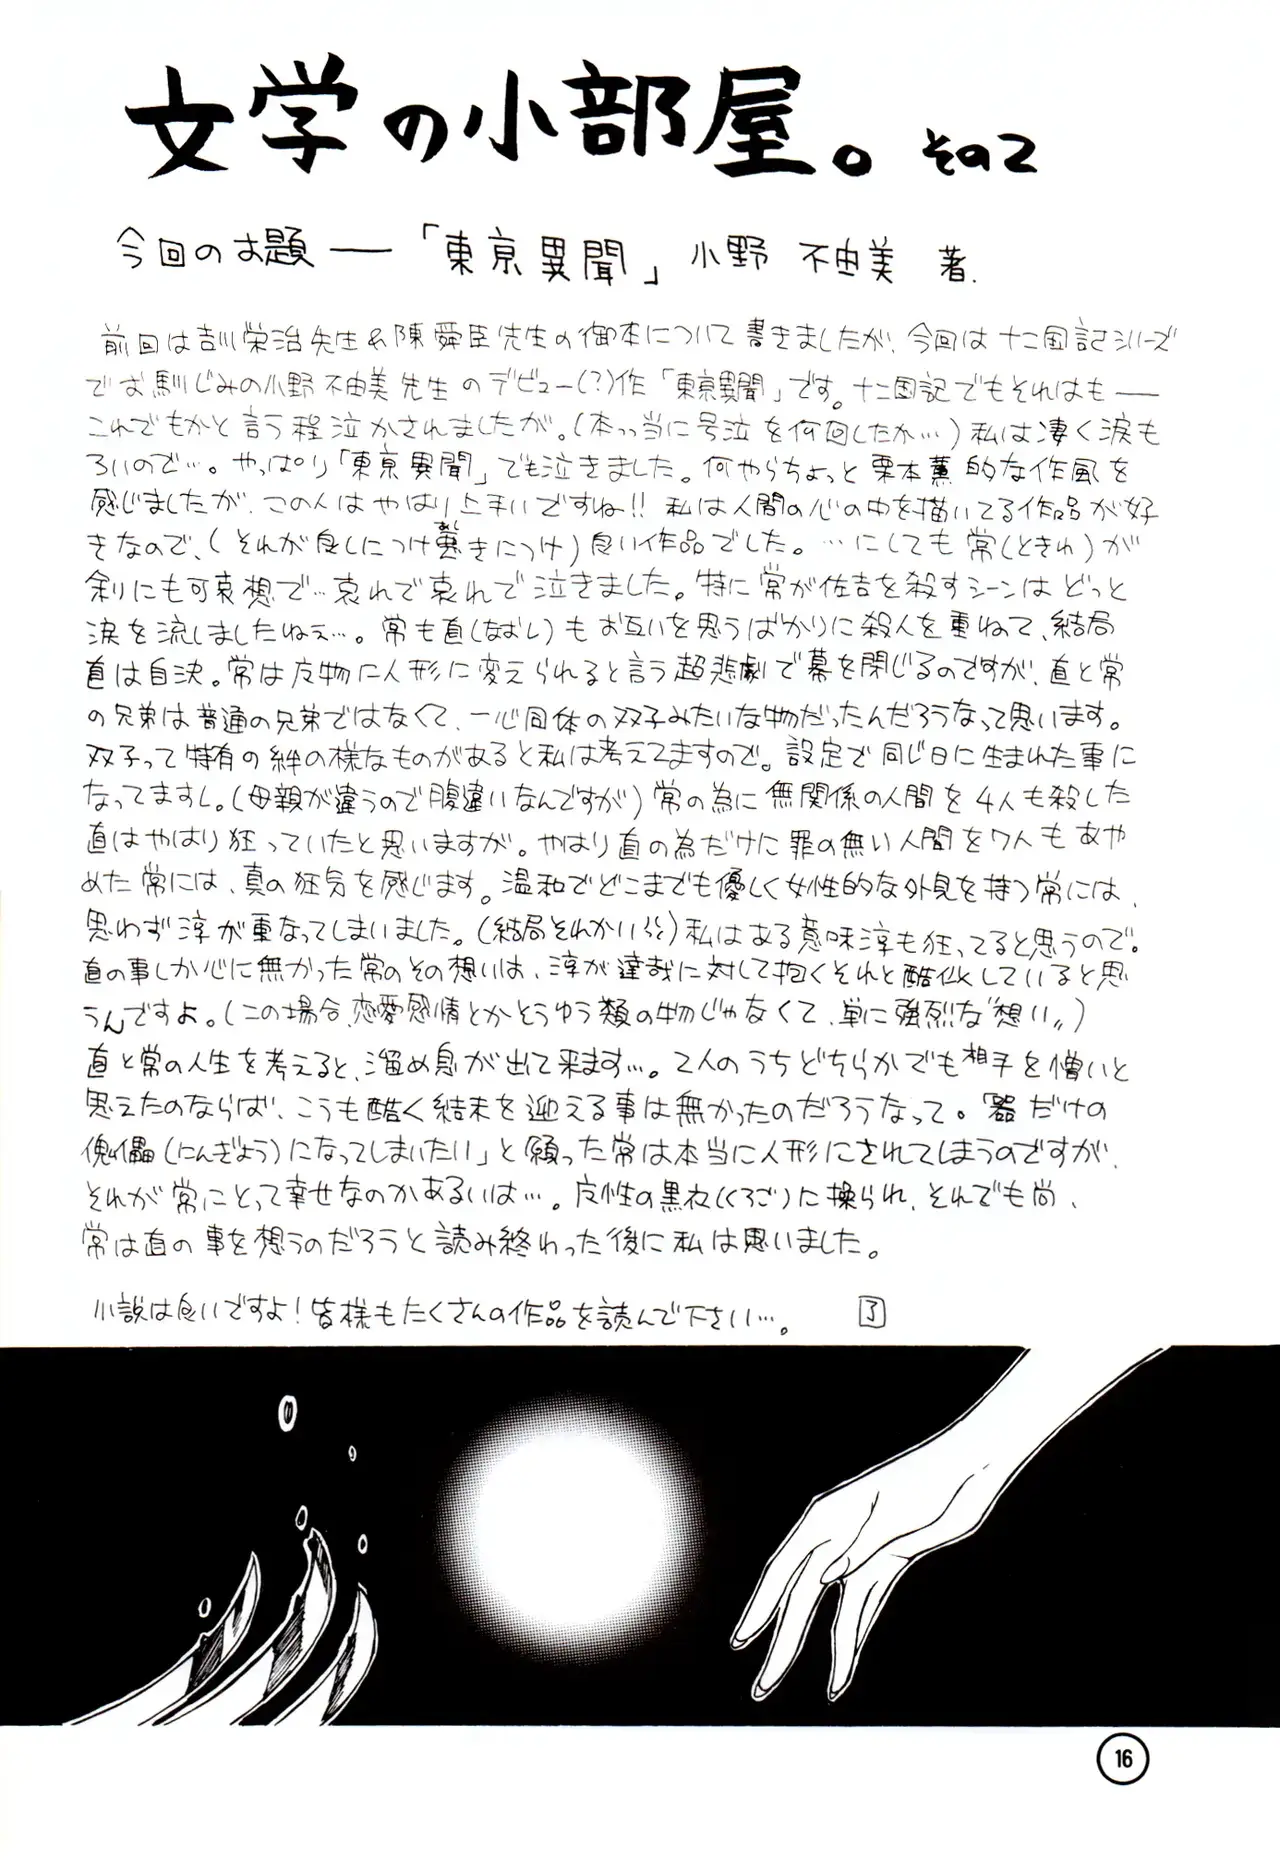 文学の小部屋。その2
今回のお題―「東京異聞」小野 不由美 著.
前回は吉川栄治先生&陳舜臣先生の御本について書きましたが、今回は十二国記シリーズ
でお馴じみの小野不由美先生のデビュー(?)作「東亰異聞」です。十二国記でもそれはも――
これでもかと言う程泣かされましたが。(本っ当に号泣を何回したか…)私は凄く涙も
ろいので…。やっぱり「東亰異聞」でも泣きました。何やらちょっと栗本薫的な作風を
感じましたが、この人はやはり上手いですね!!私は人間の心の中を描いてる作品が好
きなので、(それが良しにつけ悪きにつけ)良い作品でした。…にしても常(ときわ)が
余りにも可哀想で…哀れで哀れで泣きました。特に常が佐吉を殺すシーンはどっと
涙を流しましたねぇ…。常も直(なおし)もお互いを思うばかりに殺人を重ねて、結局
直は自決。常は左物に人形に変えられると言う超悲劇で幕を閉じるのですが、直と常
の兄弟は普通の兄弟ではなくて、一心同体の双子みたいな物だったんだろうなって思います。
双子って特有の絆の様なものがあると私は考えてますので。設定で同じ日に生まれた事に
なってますし。(母親が違うので腹違いなんですが)常の為に無関係の人間を4人も殺した
直はやはり狂っていたと思いますが。やはり直の為だけに罪の無い人間を7人もあや
めた常には、真の狂気を感じます。温和でどこまでも優しく女性的な外見を持つ常には、
思わず淳が重なってしまいました。(結局それかい)私はある意味淳も狂ってると思うので。
直の事しか心に無かった常のその想いは、淳が達哉に対して抱くそれと酷似していると思
うんですよ。(この場合、恋愛感情とかとうゆう類の物じゃなくて、単に強烈な〝想い〟)
直と常の人生を考えると、溜め息が出て来ます…。2人のうちどちらかでも相手を憎いと
思えたのならば、こうも酷く結末を迎える事は無かったのだろうなって。「器だけの
傀儡(にんぎょう)になってしまいたい」と願った常は本当に人形にされてしまうのですが、
それが常にとって幸せなのかあるいは…。左性の黒衣(くろご)に操られ、それでも尚、
常は直の事を想うのだろうと読み終わった後に私は思いました。
小説は良いですよ!皆様もたくさんの作品を読んで下さい…。 了
16